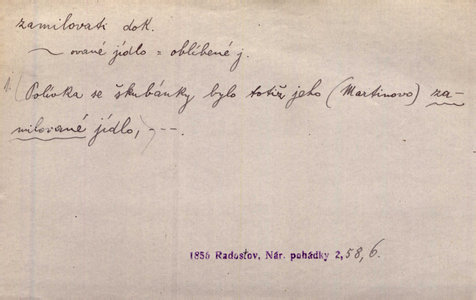 zamilovati dok.
~ované jídlo = oblíbené j.
(Polívka se škubánky bylo totiž jeho (Martinovo) za-
milované jídlo, ---
1856 Radostov, Nár. pohádky 2, 58, 6.